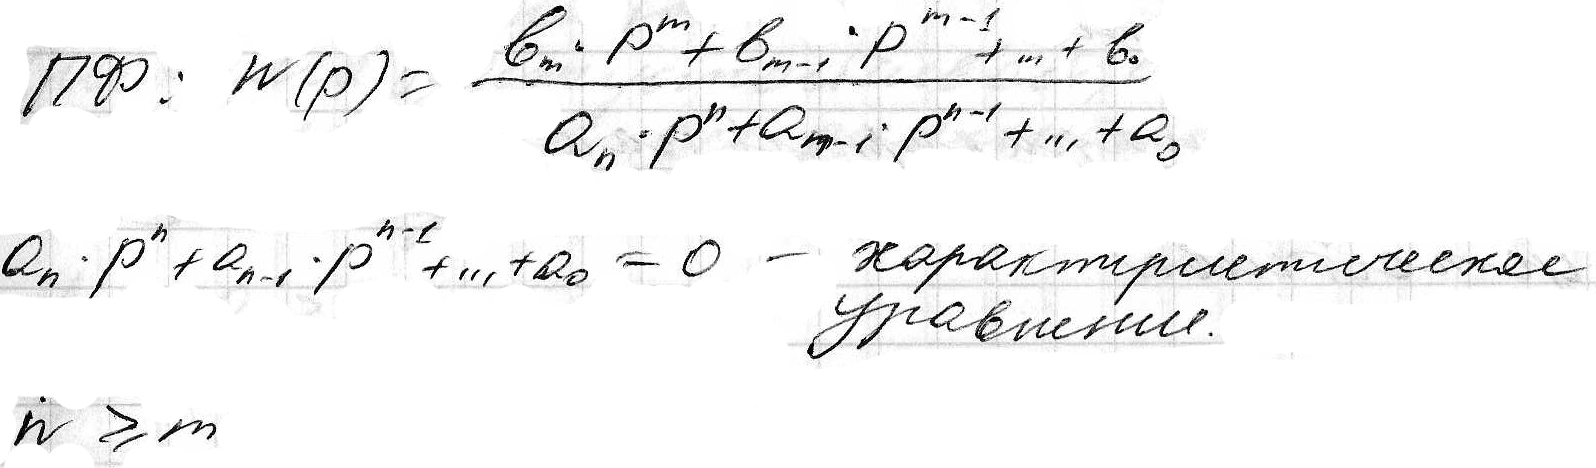 ПФ: W(p) = (b_m · p^m + b_{m-1} · p^{m-1} + ... + b_0) / (a_n · p^n + a_{m-1} · p^{n-1} + ... + a_0)
a_n · p^n + a_{n-1} · p^{n-1} + ... + a_0 = 0 – характеристическое
уравнение.
n ≥ m